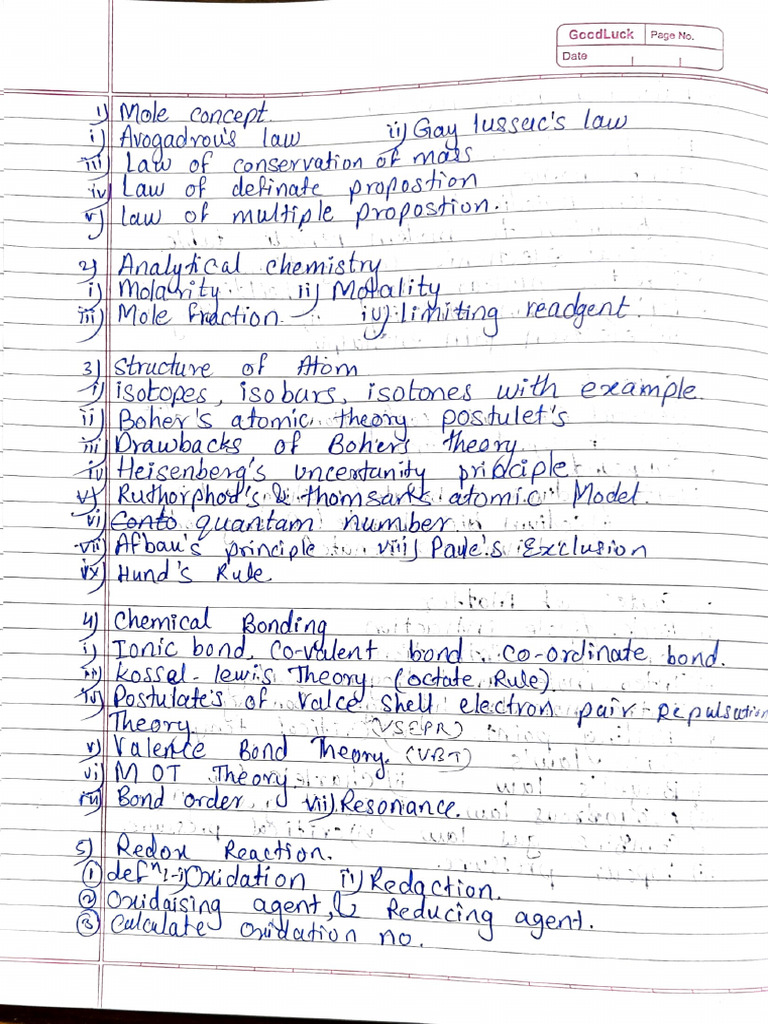 GoodLuck Page No.
Date
1) Mole concept.
i) Avogadrou's law ii) Gay lussac's law
iii) Law of conservation of mass
iv) Law of definate propostion
v) law of multiple propostion.
2) Analytical chemistry
i) Molarity ii) Molality
iii) Mole fraction iv) limiting readgent.
3) Structure of Atom
i) isotopes, isobars, isotones with example.
ii) Boher's atomic theory postulet's
iii) Drawbacks of Boher's theory
iv) Heisenberg's uncertunity principle
v) Ruthorphod's & thomsark's atomic Model.
vi) quantam number
vii) Afbau's principle viii) Paule's Exclusion
vx) Hund's Rule
4) Chemical Bonding
i) Ionic bond, Co-valent bond, co-ordinate bond.
iii) kossel-lewis Theory (octate Rule)
iv) Postulate's of valce shell electron pair Repulsution
Theory. (VSEPR)
v) Valence Bond Theory. (VBT)
vi) MOT Theory
Bond order, vii) Resonance.
5) Redox Reaction.
① defⁿ:- i) Oxidation ii) Redaction.
② Oxidaising agent, & Reducing agent.
③ Calculate oxidation no.